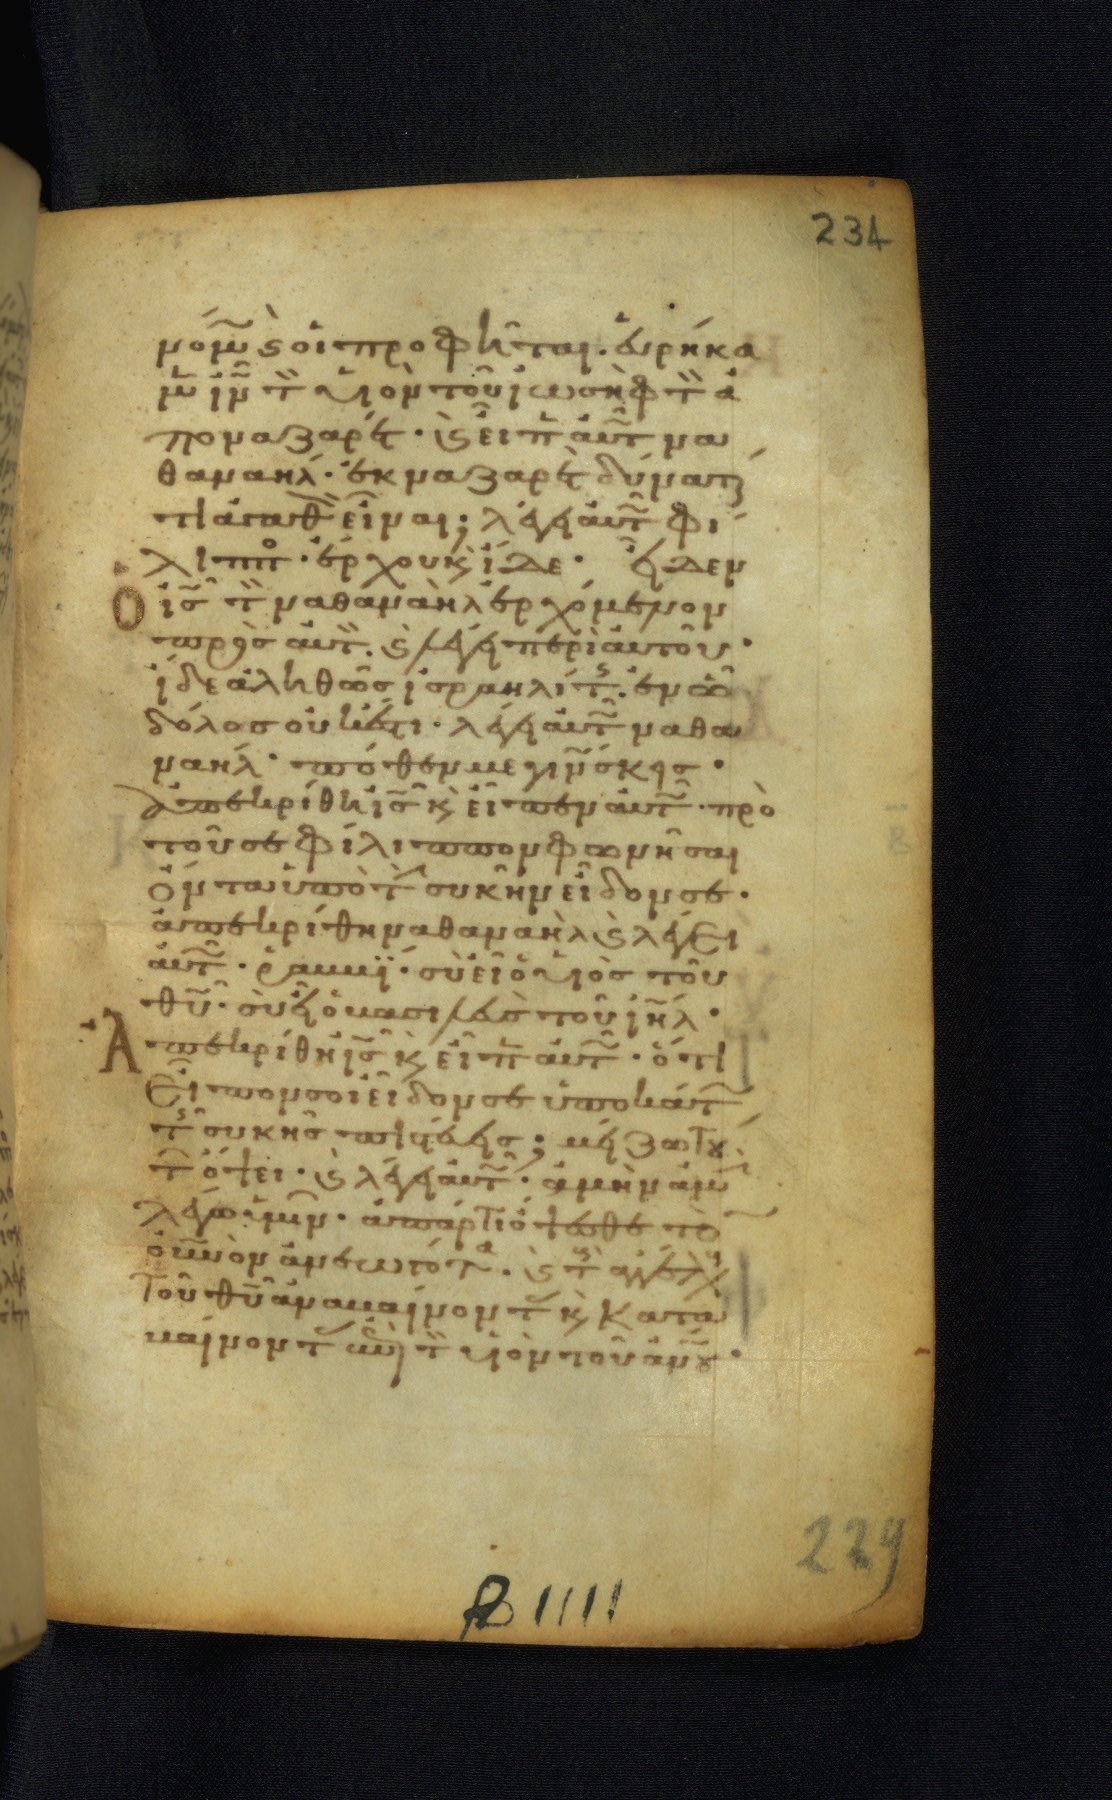 234
νόμω κ οἱ προφῆται. εὑρήκα
μεν ιν τὸν υἱὸν τοῦ ἰωσὴφ τὸν ἀ
πο ναζαρέτ · κ εἶπεν αὐτῶ να
θαναήλ · ἐκ ναζαρὲτ δύναταί
τι ἀγαθὸν εἶναι; λέγει αὐτῶ φί
λιππος · ἔρχου κ ἴδε · εἶδεν
ὁ ις τὸν ναθαναὴλ ἐρχόμενον
πρὸς αὐτὸν. κ λέγει περὶ αὐτοῦ ·
ἴδε ἀληθῶς ἰσραηλίτης. ἐν ὧ
δόλος οὐκ ἔστι · λέγει αὐτῶ ναθα
ναήλ · πόθεν με γινώσκεις ·
ἀπεκρίθη ις κ εἶπεν αὐτῶ · πρὸ
τοῦ σε φίλιππον φωνῆσαι
ὄντα ὑπὸ τὴν συκῆν εἶδον σε ·
ἀπεκρίθη ναθαναὴλ κ λέγει
αὐτῶ · ῥαββϊ · σὺ εἶ ὁ υἱὸς τοῦ
θυ · σὺ εἶ ὁ βασιλεὺς τοῦ ιηλ ·
Ἀπεκρίθη ις κ εἶπεν αὐτῶ · ὅτι
εἶπον σοι εἶδον σε ὑποκάτω
τῆς συκῆς πιστεύεις; μείζω τού
των ὄψει · κ λέγει αὐτῶ · ἀμὴν ἀμὴν
λέγω ὑμῖν · ἀπάρτι ὄψεσθε τὸν
οὐνον ἀνεωγότα · κ τοὺς ἀγγέλους
τοῦ θυ ἀναβαίνοντας κ κατα
βαίνοντας ἐπὶ τὸν υἱὸν τοῦ ἀνου ·
229